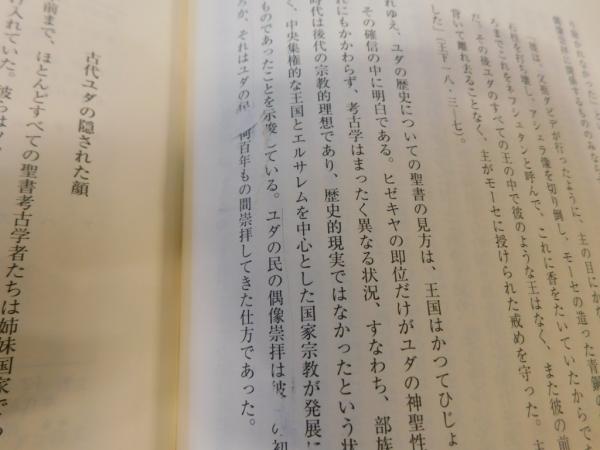 う聴かれなかった
関係崇拝に関連するもののみなら
「彼は、父祖ダビデが行ったように、主の目にかな
石柱を打ち壊し、アシェラ像を切り倒し、モーセの造った青銅の
ろまでこれをネフシュタンと呼んで、これに香をたいていたからです
た。その後ユダのすべての王の中で彼のような王はなく、また彼の前
背いて離れ去ることなく、主がモーセに授けられた戒めを守った。主
した」（王下一八・三―七）。
れゆえ、ユダの歴史についての聖書の見方は、王国はかつてひじょ
その確信の中に明白である。ヒゼキヤの即位だけがユダの神聖性
れにもかかわらず、考古学はまったく異なる状況、すなわち、部族
時代は後代の宗教的理想であり、歴史的現実ではなかったという状
く、中央集権的な王国とエルサレムを中心とした国家宗教が発展に
ものであったことを示唆している。ユダの民の偶像崇拝は彼 の初
ろか、それはユダの民 何百年もの間崇拝してきた仕方であった。
古代ユダの隠された顔
前まで、ほとんどすべての聖書考古学者たちは姉妹国家である
け入れていた。彼らは